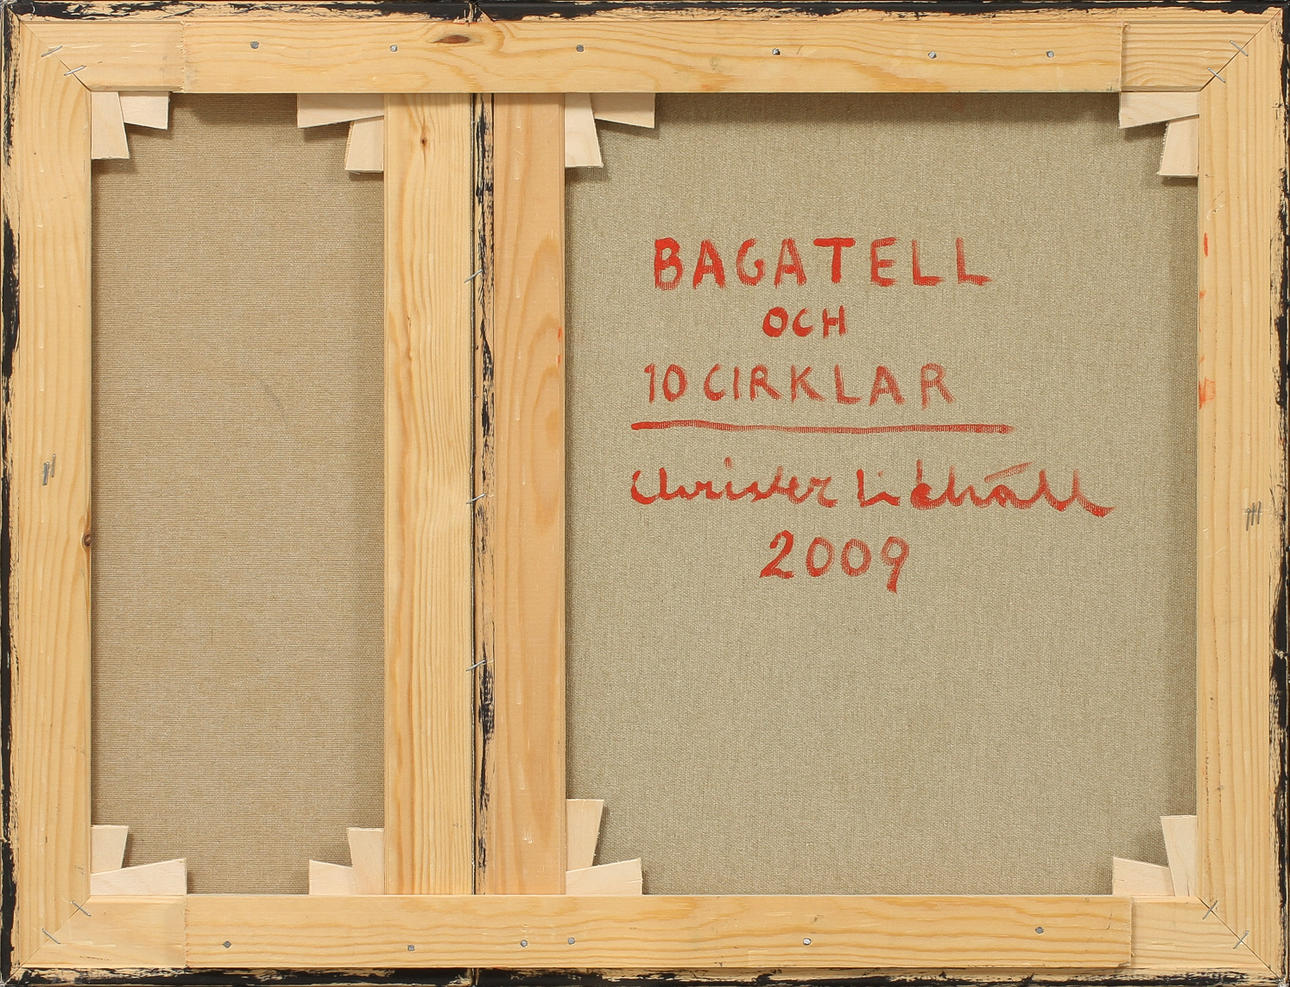 BAGATELL
OCH
10 CIRKLAR
Christer
2009